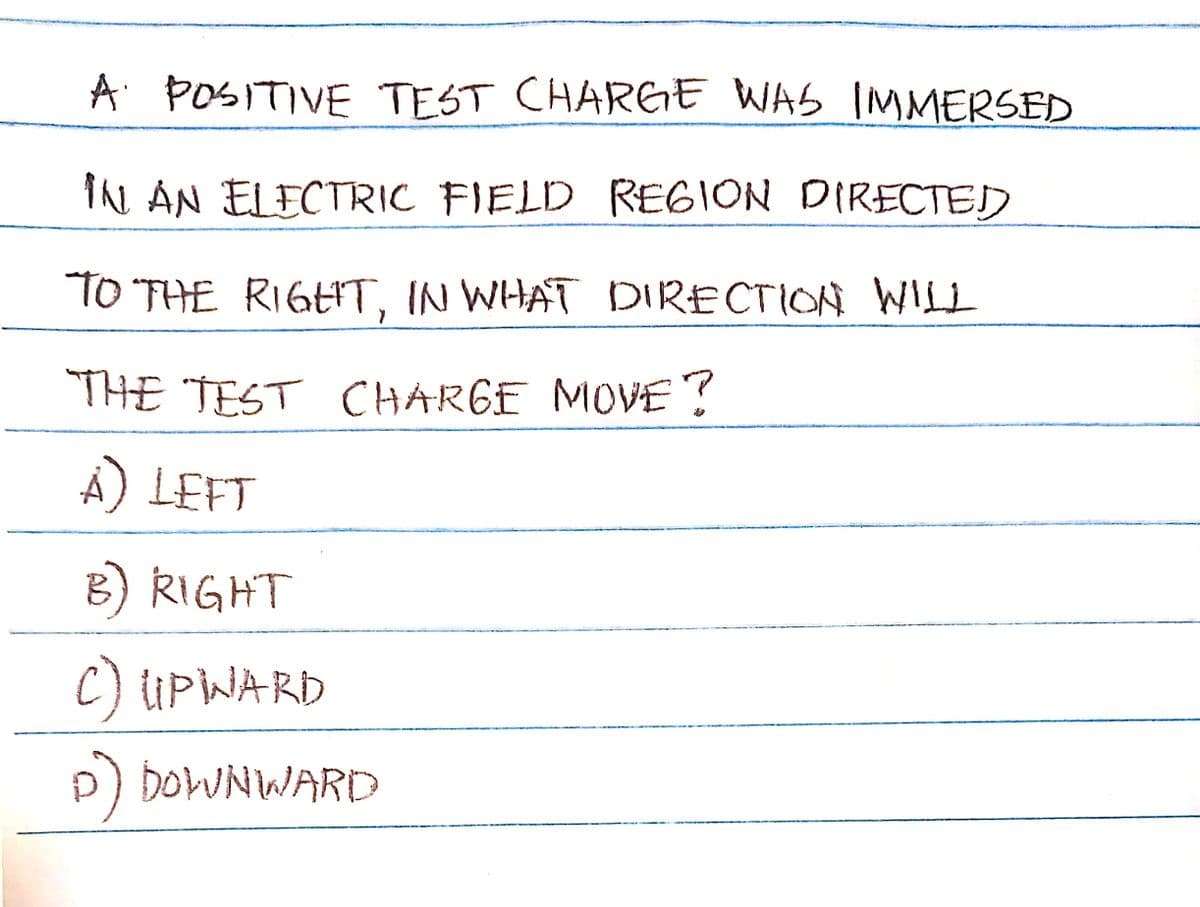 A POSITIVE TEST CHARGE WAS IMMERSED
IN AN ELECTRIC FIELD REGION DIRECTED
TO THE RIGHT, IN WHAT DIRECTION WILL
THE TEST CHARGE MOVE?
A) LEFT
B) RIGHT
C) UPWARD
D) DOWNWARD